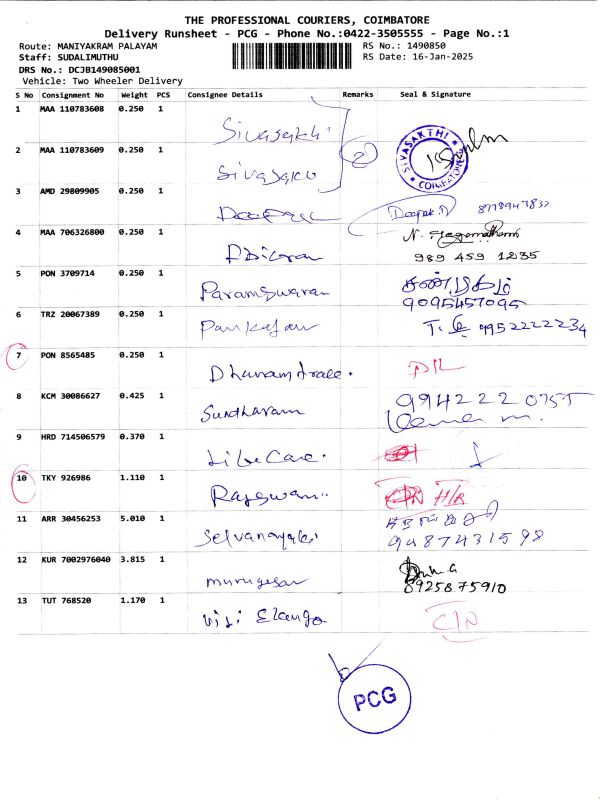 THE PROFESSIONAL COURIERS, COIMBATORE
Delivery Runsheet - PCG - Phone No.:0422-3505555 - Page No.:1
Route: MANIYAKRAM PALAYAM RS No.: 1490850
Staff: SUDALIMUTHU RS Date: 16-Jan-2025
DRS No.: DCJB149085001
Vehicle: Two Wheeler Delivery
S No Consignment No Weight PCS Consignee Details Remarks Seal & Signature
1 MAA 110783608 0.250 1 Sivasakthi
2 MAA 110783609 0.250 1 2 SIVASAKTHI COIMBATORE
3 AMD 29809905 0.250 1 Deepak
4 MAA 706326800 0.250 1 989 459 1235
5 PON 3709714 0.250 1 Parameswaran 9095457095
6 TRZ 20067389 0.250 1 Pankajam 9952222234
7 PON 8565485 0.250 1 D/L
8 KCM 30086627 0.425 1 Sundharam
9 HRD 714506579 0.370 1 Life Care
10 TKY 926986 1.110 1 C/N H/R
11 ARR 30456253 5.010 1 Selvanayaki 9487431598
12 KUR 7002976040 3.815 1 murugesan 8925875910
13 TUT 768520 1.170 1 Elango C/N
PCG